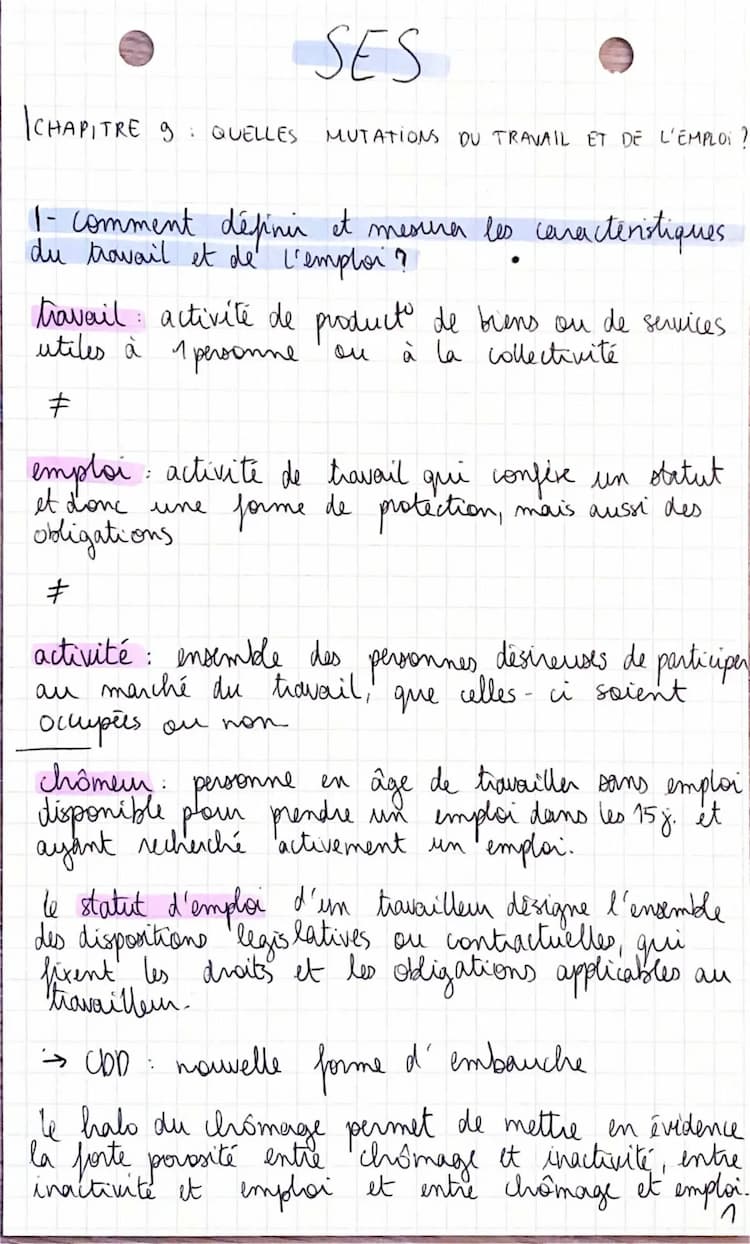 SES
CHAPITRE 9 : QUELLES MUTATIONS DU TRAVAIL ET DE L'EMPLOI ?
1- comment définir et mesurer les caractéristiques
du travail et de l'emploi ?
travail : activité de product° de biens ou de services
utiles à 1 personne ou à la collectivité
≠
emploi : activité de travail qui confère un statut
et donc une forme de protection, mais aussi des
obligations
≠
activité : ensemble des personnes désireuses de participer
au marché du travail, que celles-ci soient
occupées ou non
chômeur : personne en âge de travailler sans emploi
disponible pour prendre un emploi dans les 15 j. et
ayant recherché activement un emploi.
le statut d'emploi d'un travailleur désigne l'ensemble
des dispositions législatives ou contractuelles, qui
fixent les droits et les obligations applicables au
travailleur.
→ CDD : nouvelle forme d'embauche
le halo du chômage permet de mettre en évidence
la forte porosité entre chômage et inactivité, entre
inactivité et emploi et entre chômage et emploi.
1